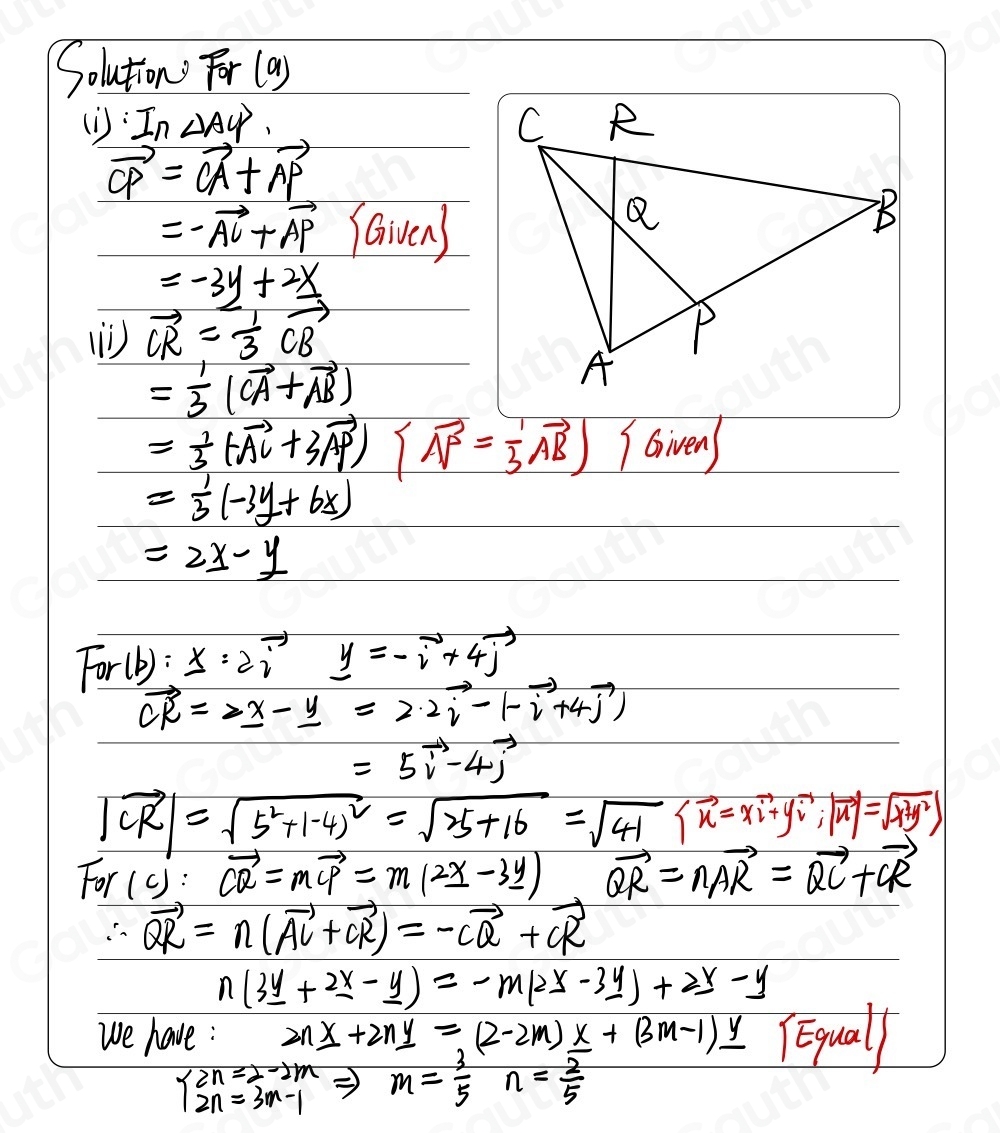 Solution: For (a)
(i): In △ACP,
C R
Q
B
P
A
→CP = →CA + →AP
= -→AC + →AP {Given}
= -3y + 2x
(ii) →CR = 1/3 →CB
= 1/3 (→CA + →AB)
= 1/3 (-→AC + 3→AP) {→AP = 1/3 →AB} {Given}
= 1/3 (-3y + 6x)
= 2x - y
For (b): x = 2→i y = -→i + 4→j
→CR = 2x - y = 2·2→i - (-→i + 4→j)
= 5→i - 4→j
|→CR| = √(5² + (-4)²) = √(25+16) = √41 {→u = x→i + y→i ; |→u| = √(x²+y²)}
For (c): →CQ = m→CP = m(2x - 3y) →QR = n→AR = →QC + →CR
∴ →QR = n(→AC + →CR) = -→CQ + →CR
n(3y + 2x - y) = -m(2x - 3y) + 2x - y
We have: 2nx + 2ny = (2-2m)x + (3m-1)y {Equal}
{2n = 2-2m
2n = 3m-1 ⇒ m = 3/5 n = 2/5
Gauth